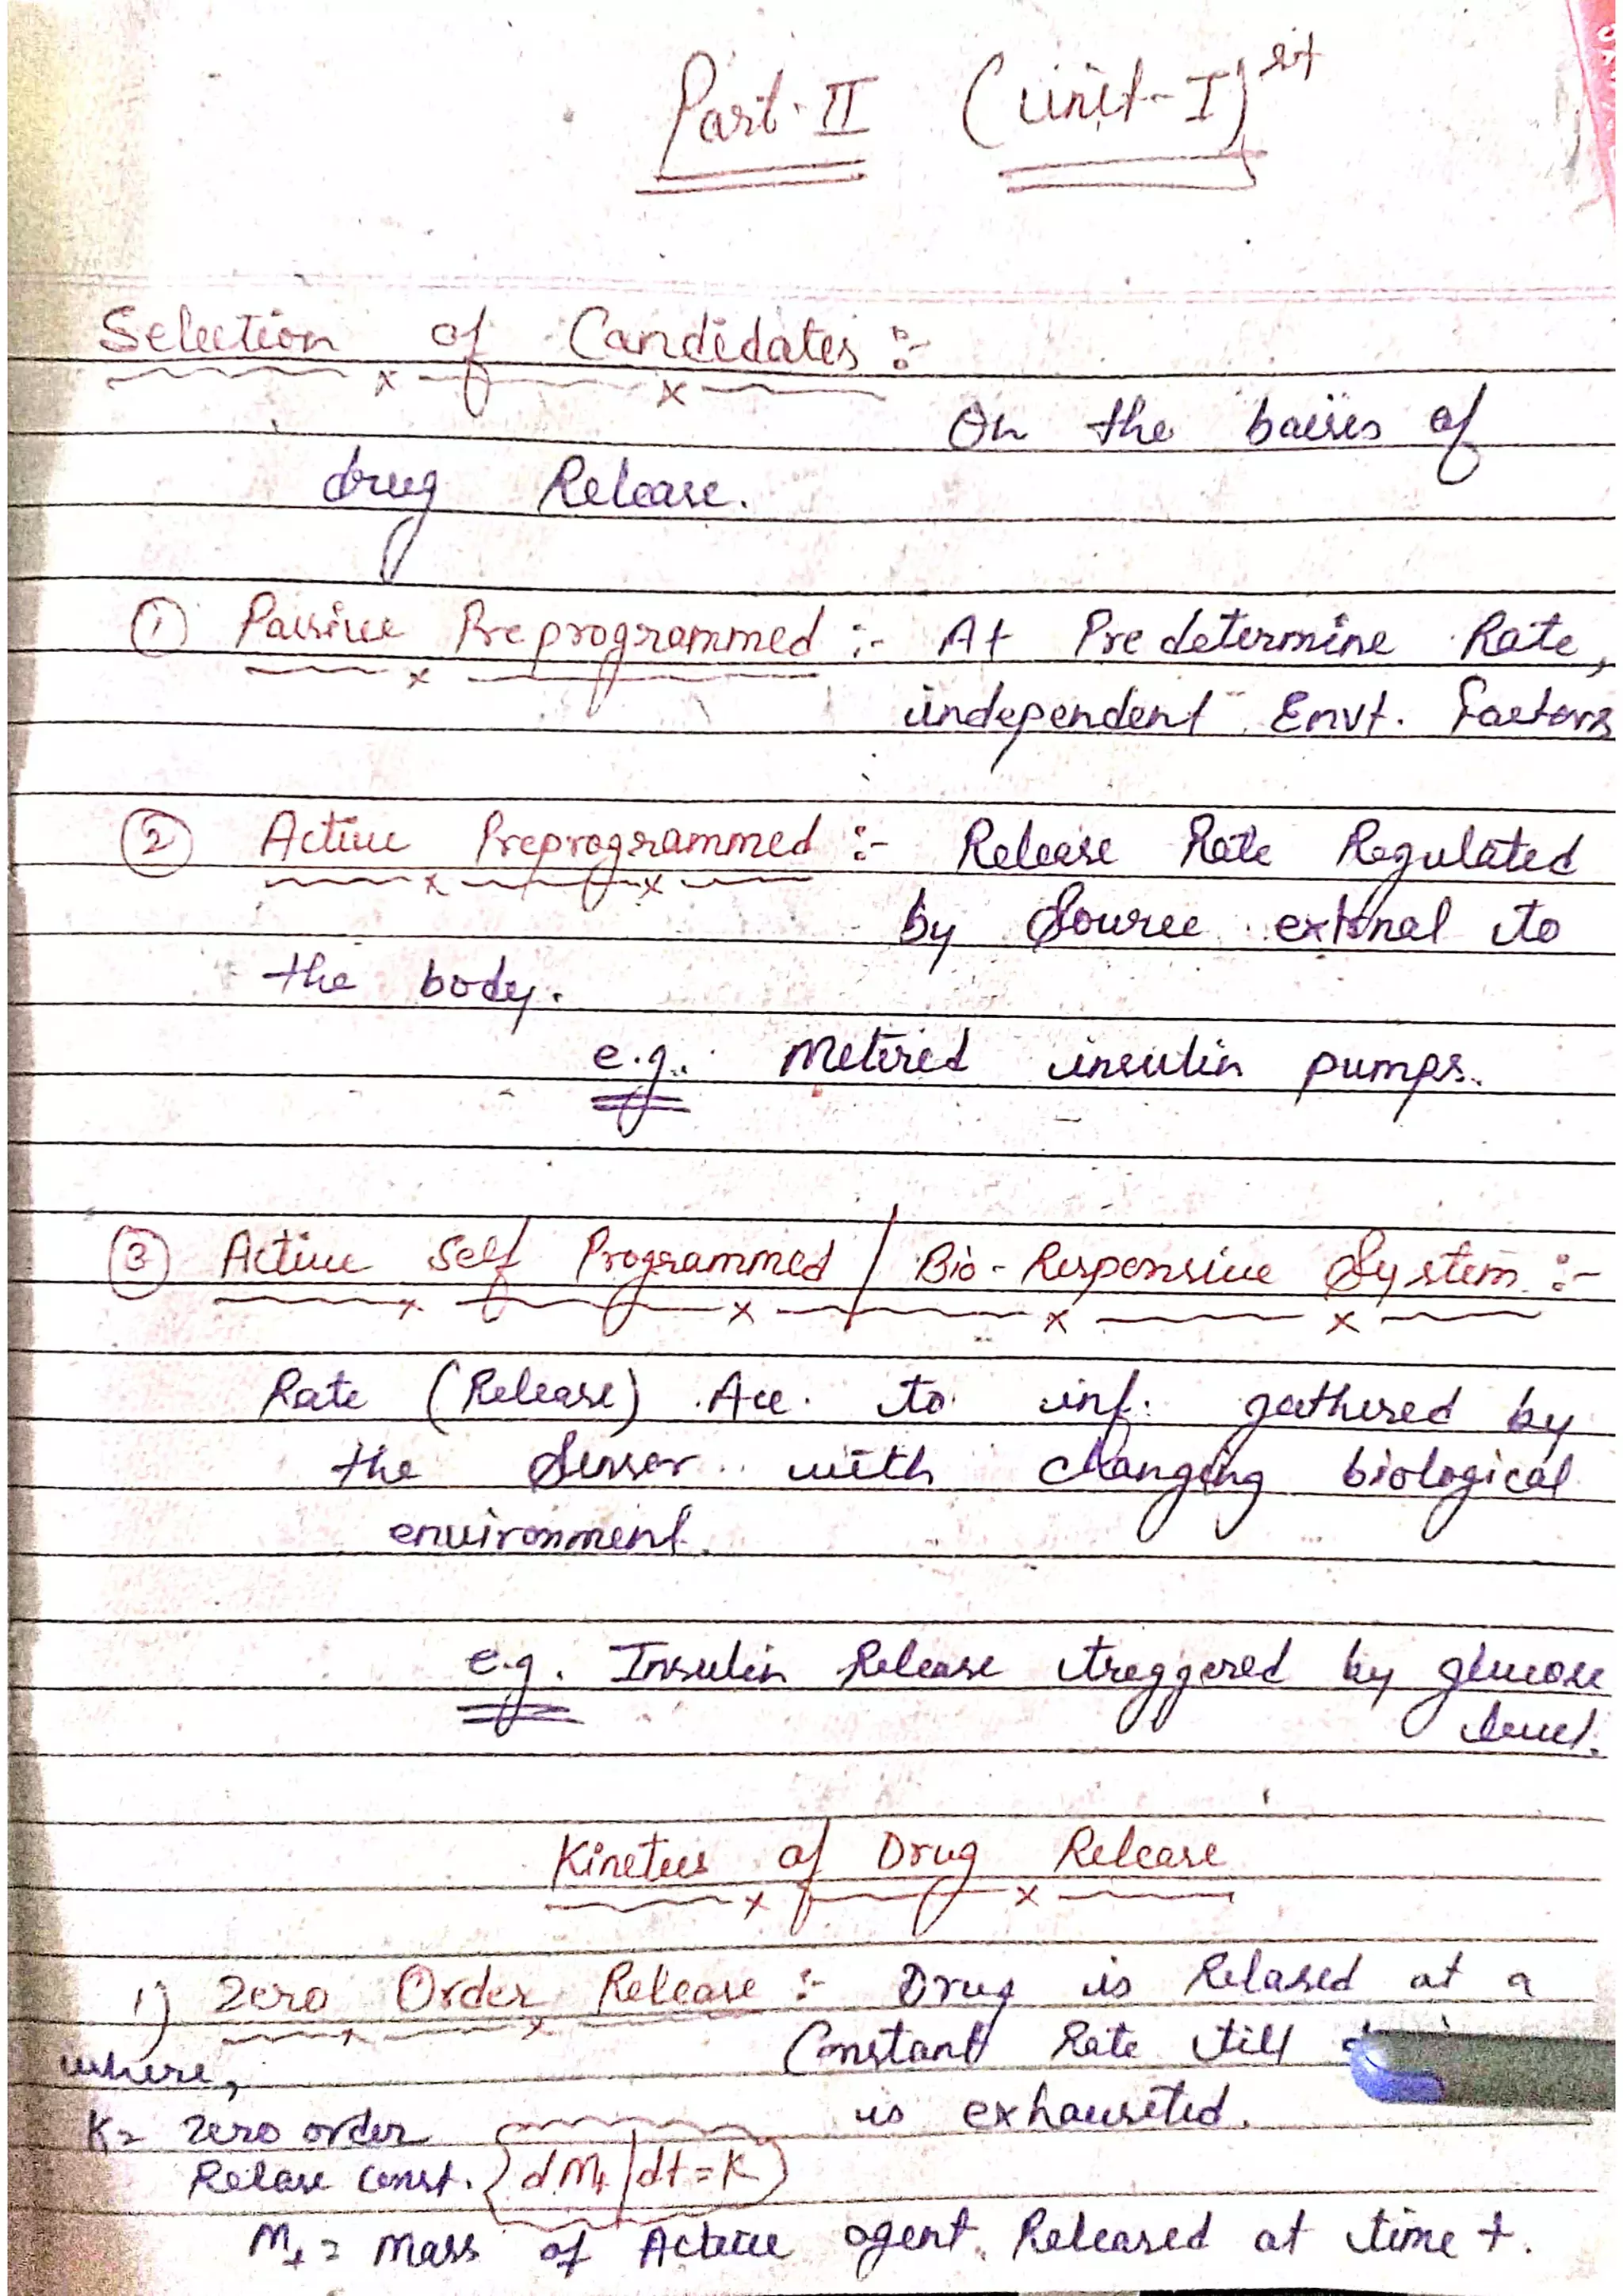 Part-II (unit-I)st
Selection of Candidates :-
On the baises of
drug Release.
① Passive Preprogrammed :- At Predetermine Rate,
independent Envt. factors
② Active Preprogrammed :- Release Rate Regulated
by Source extrnal to
the body.
e.g. Metired insulin pumps.
③ Active Self Programmed / Bio-Responsive System :-
Rate (Release) Acc. to inf. gathered by
the Sensor with changing biological
environment.
e.g. Insulin Release treggered by glucose
level.
Kinetics of Drug Release
1) Zero Order Release :- Drug is Relased at a
Constant Rate till
where,
is exhausted.
K= Zero order
Relase Const. dMt/dt=K
Mt = Mass of Active agent Released at time t.